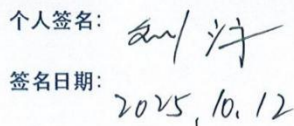 个人签名: 刘
签名日期:
2025.10.12